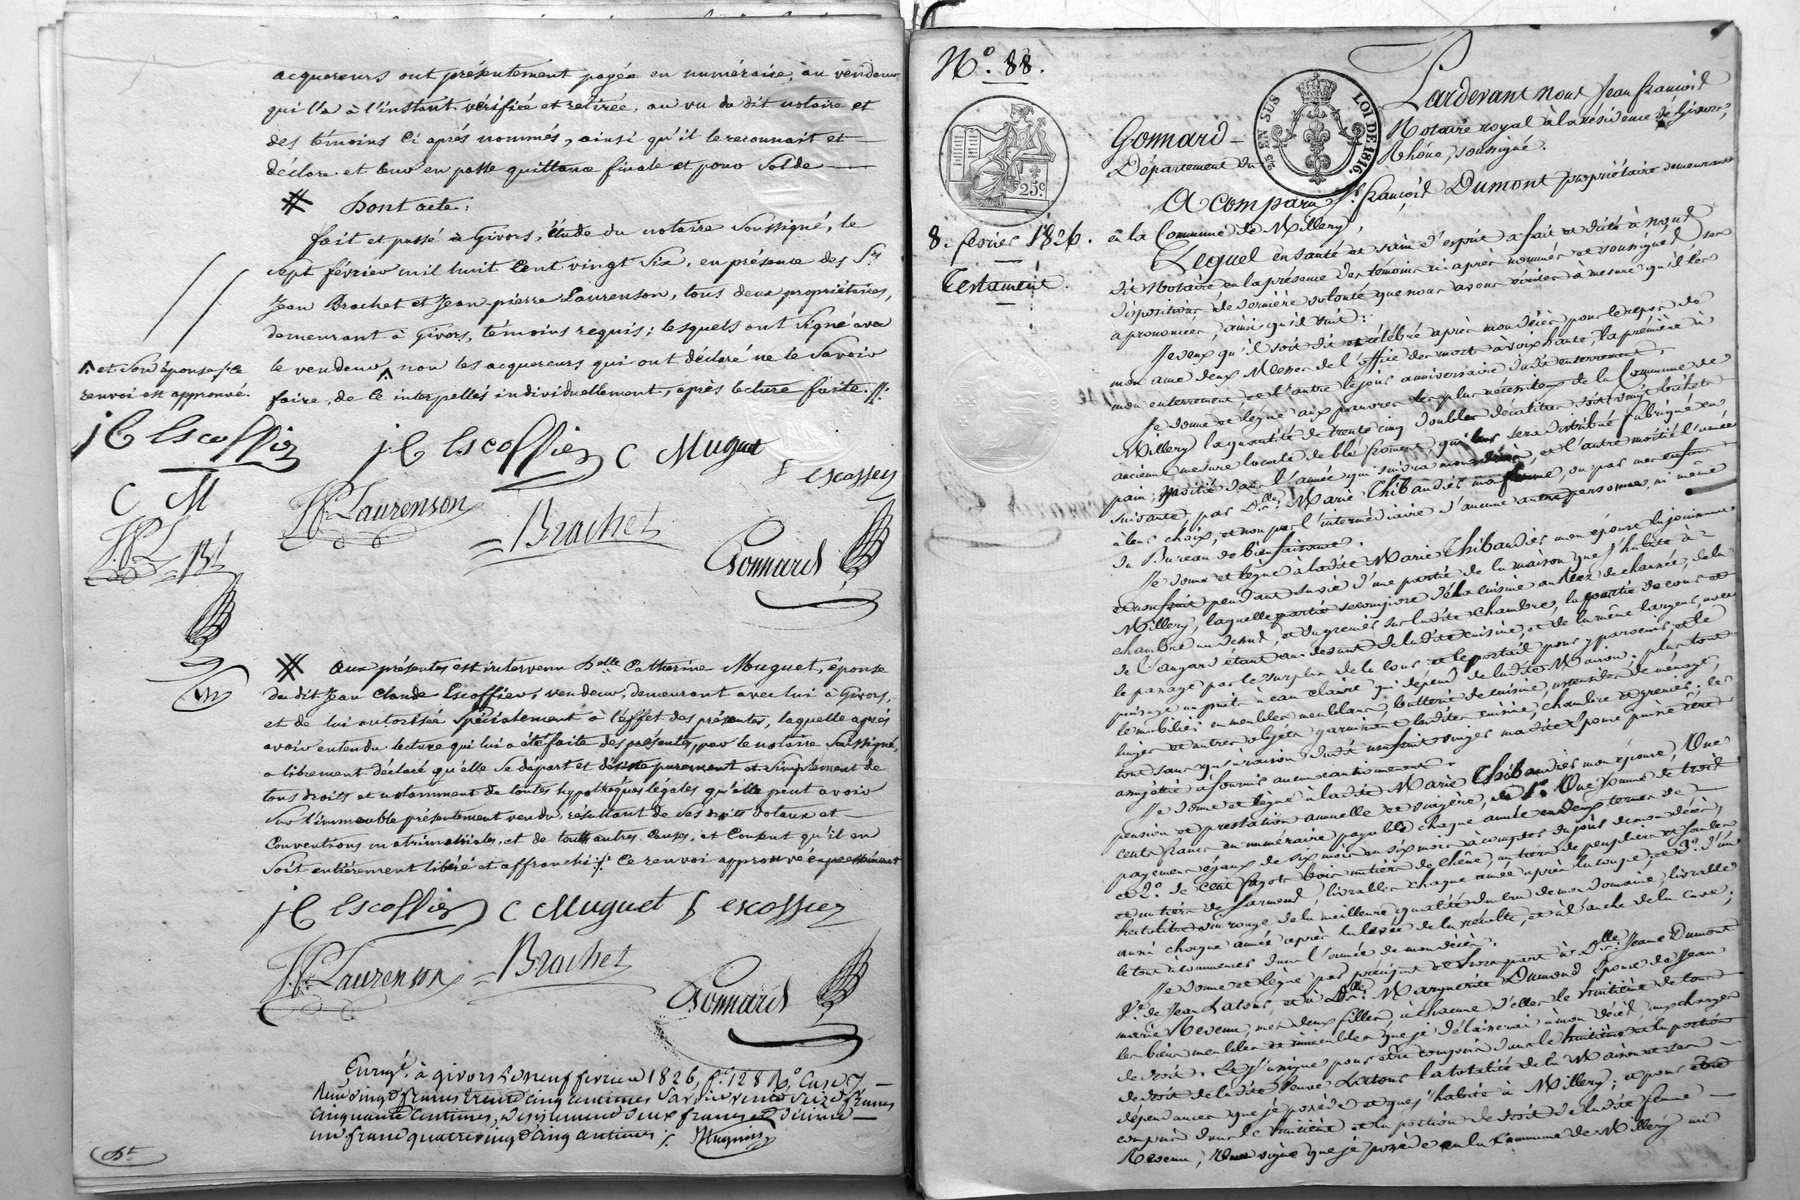 acquereurs ont présentement payée en numéraire, au vendeur
qui l'a à l'instant vérifiée et retirée, au vu du dit notaire et
des témoins ci après nommés, ainsi qu'il le reconnait et
déclare et leur en passe quittance finale et pour solde
Dont acte:
fait et passé à Givors, étude du notaire soussigné, le
sept février mil huit cent vingt six, en présence des Srs
Jean Brachet et Jean pierre Laurenson, tous deux propriétaires,
demeurant à Givors, témoins requis; lesquels ont signé avec
le vendeur, non les acquereurs qui ont déclaré ne le savoir
faire, de ce interpellés individuellement, après lecture faite.
et son épouse, ce
renvoi est approuvé.
jC Escoffier
jC Escoffier C Muguet
C M
JP Laurenson
Brachet
Gonnard
aux présentes est intervenu Delle Catherine Muguet, épouse
du dit Jean Claude Escoffier, vendeur, demeurant avec lui à Givors,
et de lui autorisée spécialement à l'effet des présentes, laquelle après
avoir entendu lecture qui lui a été faite des présentes, par le notaire soussigné,
a librement déclaré qu'elle se départ et désiste purement et simplement de
tous droits et notamment de toutes hypothèques légales qu'elle peut avoir
sur l'immeuble présentement vendu, résultant de ses droits dotaux et
conventions matrimoniales, et de toutes autres causes, et consent qu'il en
soit entièrement libéré et affranchi; ce renvoi approuvé expressément
jC Escoffier C Muguet
J.P. Laurenson
Brachet
Gonnard
Enregé. à givors le neuf février 1826, fo. 128
cinquante centimes,
No. 88.
25c
25 EN SUS
LOI DE 1816
8. fevrier 1826.
Testament.
Pardevant nous Jean François
Gonnard
Notaire royal à la résidence de Givors,
Département du
Rhône, soussigné.
A comparu Sr. François Dumont propriétaire demeurant
en la Commune de Millery,
Lequel en santé et sain d'esprit a fait et dicté à nous
dit Notaire, en la présence des témoins ci après nommés et soussignés ses
dispositions de dernière volonté que nous avons écrites à mesure qu'il les
a prononcées, ainsi qu'il suit:
Je veux qu'il soit dit et célébré après mon décès pour le repos de
mon ame deux Messes de l'office des morts à voix haute, la première à
mon enterrement et l'autre le jour anniversaire dudit enterrement.
Je donne et lègue aux pauvres les plus nécessiteux de la Commune de
Millery la quantité de trente cinq doubles décalitres soit vingt bichets
ancienne mesure locale de blé froment qui leur sera distribué fabriqué en
pain, moitié dans l'année qui suivra mon décès, et l'autre moitié l'année
suivante, par Delle Marie Thibaudier ma femme, ou par mes enfans
à leur choix, et non par l'intermédiaire d'aucune autre personne, ni même
du Bureau de bienfaisance.
Je donne et lègue à ladite Marie Thibaudier mon épouse la jouissance
et usufruit pendant sa vie d'une partie de la maison que j'habite à
Millery, laquelle partie se compose de la cuisine au rez de chaussée, de la
chambre au dessus, et du grenier sur ladite chambre, la portion de cour et
de l'angard étant au devant de ladite cuisine, et de la même largeur, avec
le passage par le surplus de la cour et le portail pour y parvenir, et le
puisage au puits à eau claire qui dépend de ladite Maison: plus tout
le mobilier en meubles meublans, batterie de cuisine, ustensiles de ménage,
linges et autres objets garnissant lesdits cuisine, chambre et grenier; le
tout sans qu'à raison dudit usufruit ma dite épouse puisse être
assujettie à fournir aucun cautionnement.
Je donne et lègue à ladite Marie Thibaudier mon épouse, Une
pension et prestation annuelle et viagère, de 1o. Une somme de trois
cents francs du numéraire payable chaque année en deux termes et
payemens égaux de six mois en six mois à compter du jour de mon décès;
et 2o. de cent fagots bois un tiers de chêne, un tiers de peuplier et saule
et un tiers de sarment, livrables chaque année après la coupe; et 3o. d'un
hectolitre vin rouge de la meilleure qualité du cru de mon domaine, livrable
aussi chaque année après la levée de la récolte, et à l'anche de la cuve;
le tout à commencer dans l'année de mon décès.
Je donne et lègue par préciput et hors part à Delle Jeane Dumont
Ve. de Jean Latour, et à Delle Marguerite Dumond épouse de Jean
marie Revenu, mes deux filles, à chacune d'elles le huitième de tous
les biens meubles et immeubles que je délaisserai à mon décès,
de droit de ladite Veuve Latour la totalité de la Maison et ses
dépendances que je possède et que j'habite à Millery; et pour être
compris dans le huitième et la portion de droit de ladite femme
Revenu, Une vigne que je possède en la Commune de Millery au